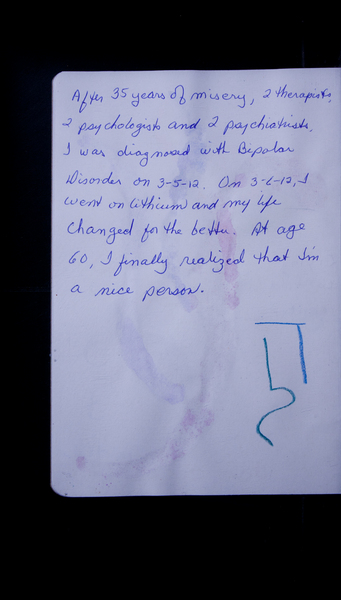 After 35 years of misery, 2 therapists,
2 psychologists and 2 psychiatrists,
I was diagnosed with Bipolar
Disorder on 3-5-12. On 3-6-12, I
went on lithium and my life
changed for the better. At age
60, I finally realized that I'm
a nice person.